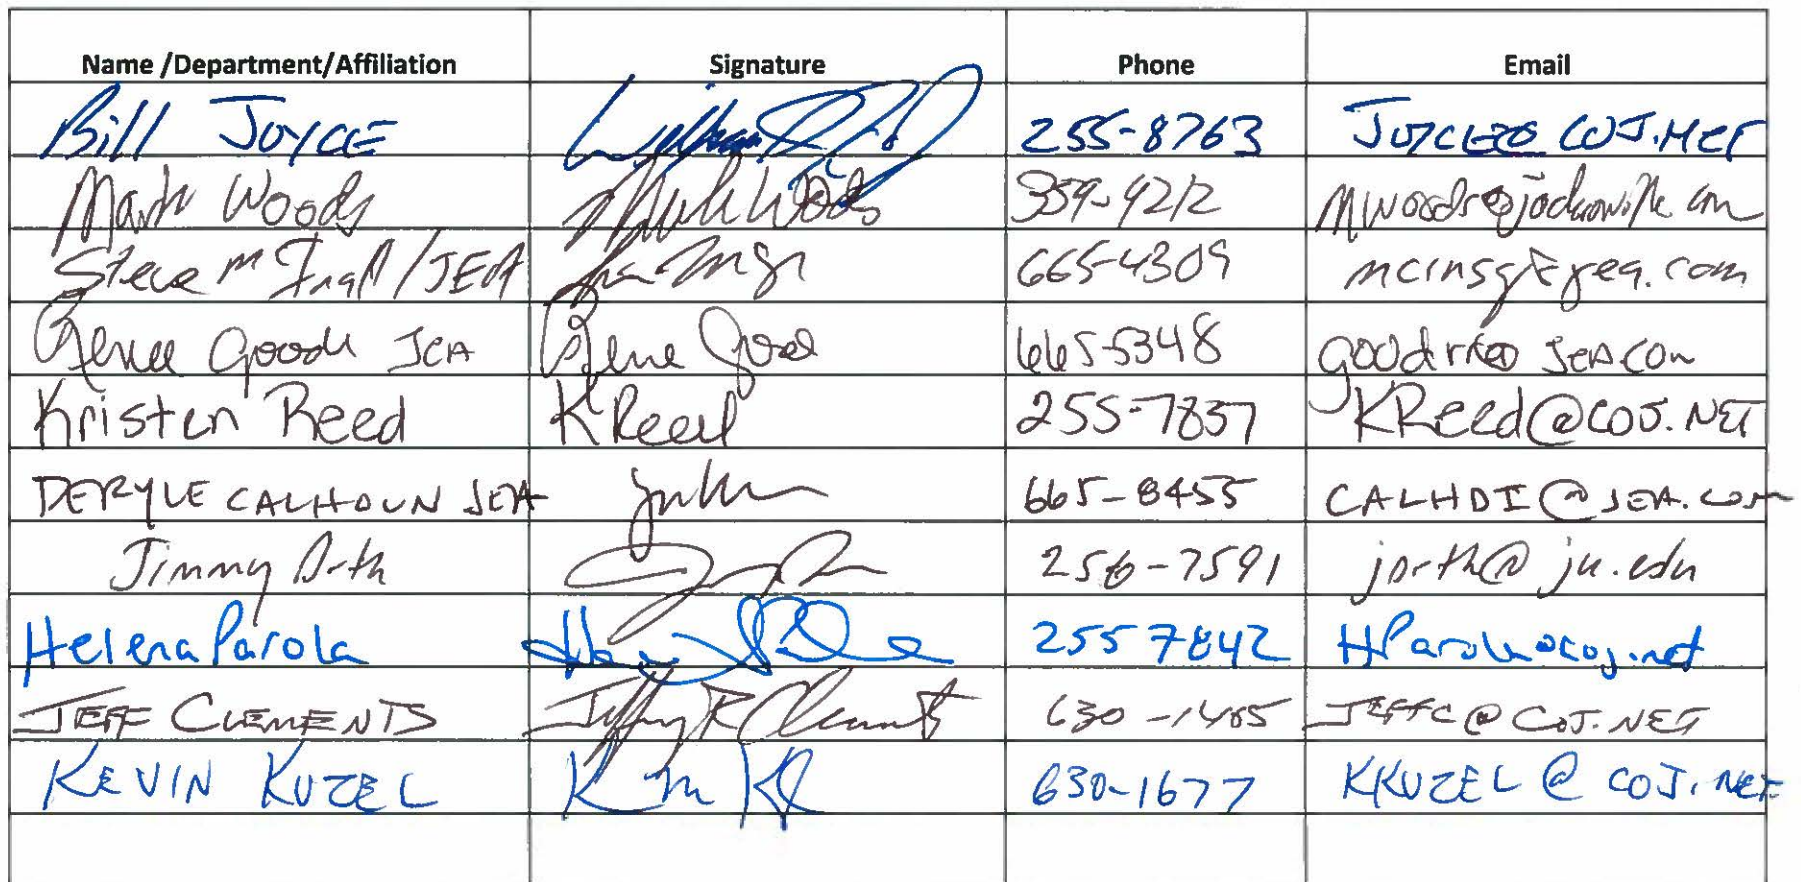 Name /Department/Affiliation Signature Phone Email
Bill JOYCE 255-8763
Mark Woods Mark Woods 359-4212
Steve 665-4309
Renee Goode JEA 665-5348
Kristen Reed K Reed 255-7837 KReed@COJ.NET
DERYLE CALHOUN JEA 665-8455 CALHDI@JEA.COM
Jimmy Orth 256-7591 jorth@ju.edu
Helena Parola 255 7842 HParola@coj.net
JEFF CLEMENTS Jeffrey R Clements 630-1405 JEFFC@COJ.NET
KEVIN KUZEL 630-1677 KKUZEL@COJ.NET